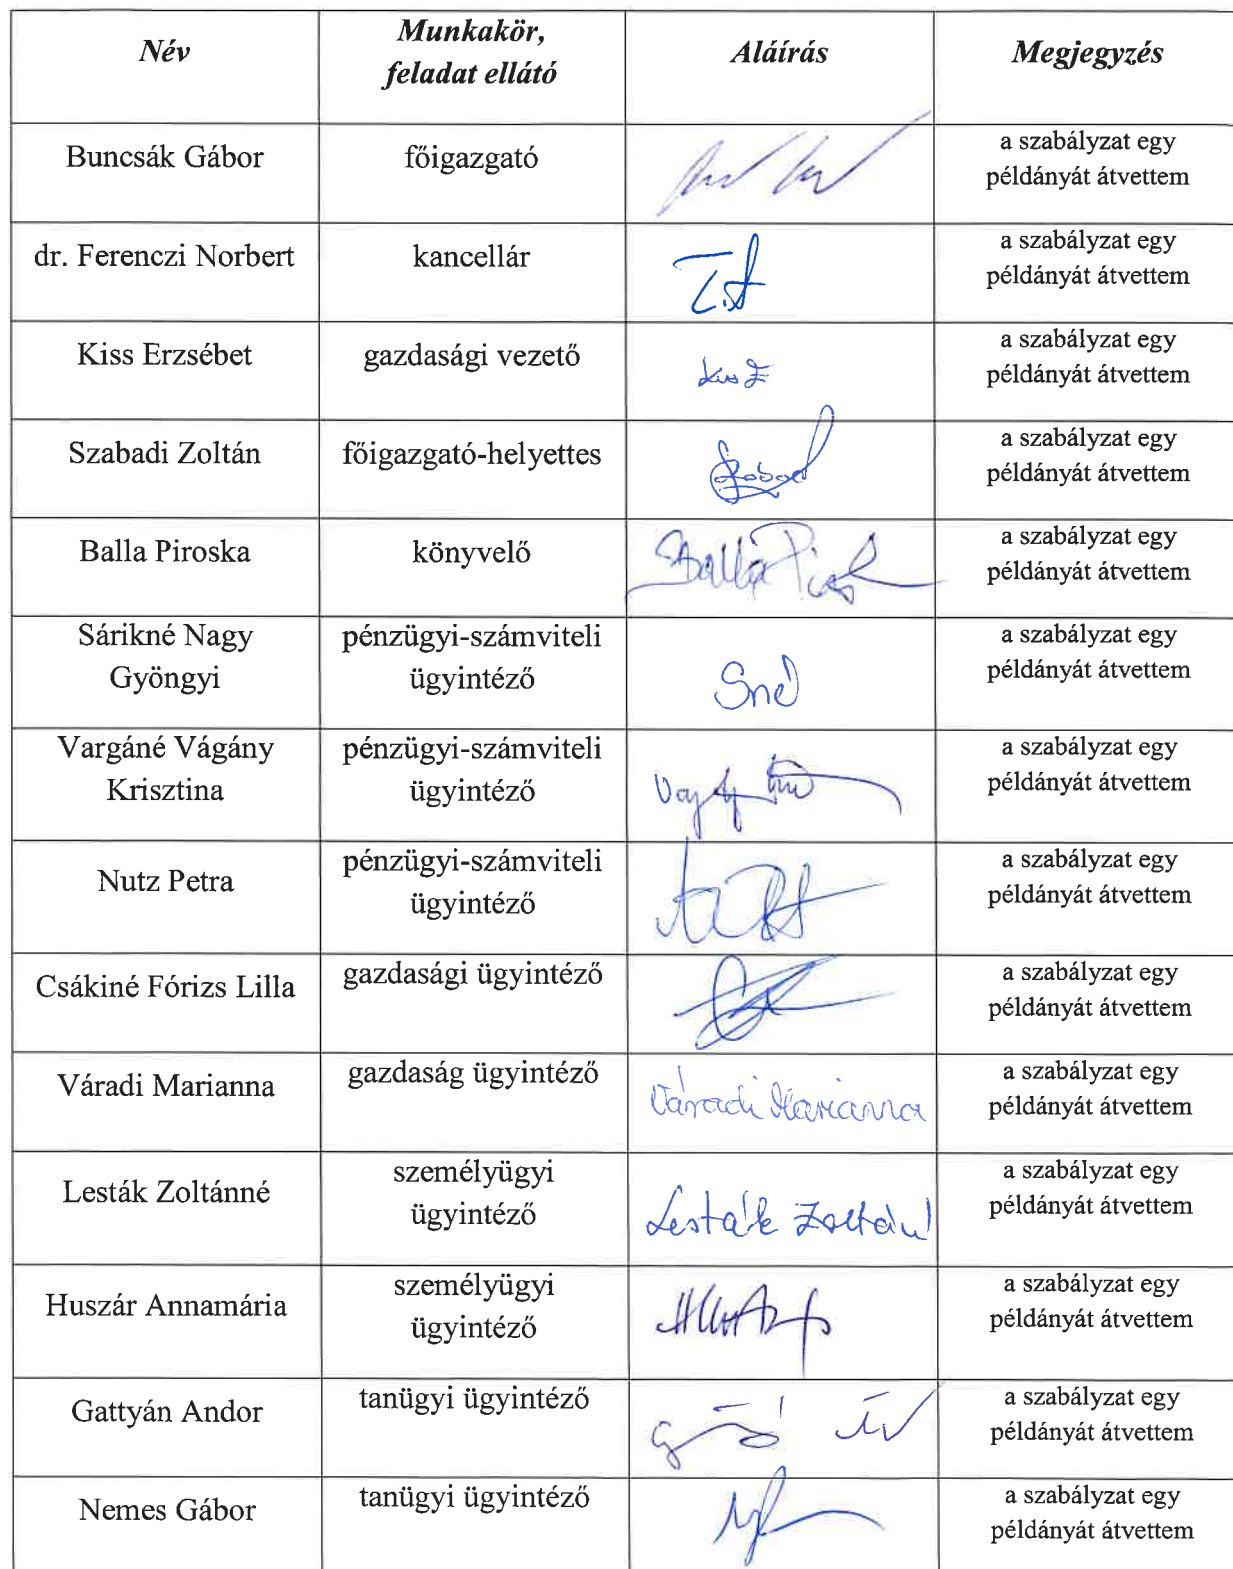 Név
Munkakör,
feladat ellátó
Aláírás
Megjegyzés
Buncsák Gábor
főigazgató
a szabályzat egy
példányát átvettem
dr. Ferenczi Norbert
kancellár
a szabályzat egy
példányát átvettem
Kiss Erzsébet
gazdasági vezető
Kiss E
a szabályzat egy
példányát átvettem
Szabadi Zoltán
főigazgató-helyettes
a szabályzat egy
példányát átvettem
Balla Piroska
könyvelő
Balla Pirosk
a szabályzat egy
példányát átvettem
Sárikné Nagy
Gyöngyi
pénzügyi-számviteli
ügyintéző
Sné
a szabályzat egy
példányát átvettem
Vargáné Vágány
Krisztina
pénzügyi-számviteli
ügyintéző
a szabályzat egy
példányát átvettem
Nutz Petra
pénzügyi-számviteli
ügyintéző
a szabályzat egy
példányát átvettem
Csákiné Fórizs Lilla
gazdasági ügyintéző
a szabályzat egy
példányát átvettem
Váradi Marianna
gazdaság ügyintéző
Váradi Marianna
a szabályzat egy
példányát átvettem
Lesták Zoltánné
személyügyi
ügyintéző
Lesták Zoltánné
a szabályzat egy
példányát átvettem
Huszár Annamária
személyügyi
ügyintéző
a szabályzat egy
példányát átvettem
Gattyán Andor
tanügyi ügyintéző
a szabályzat egy
példányát átvettem
Nemes Gábor
tanügyi ügyintéző
a szabályzat egy
példányát átvettem